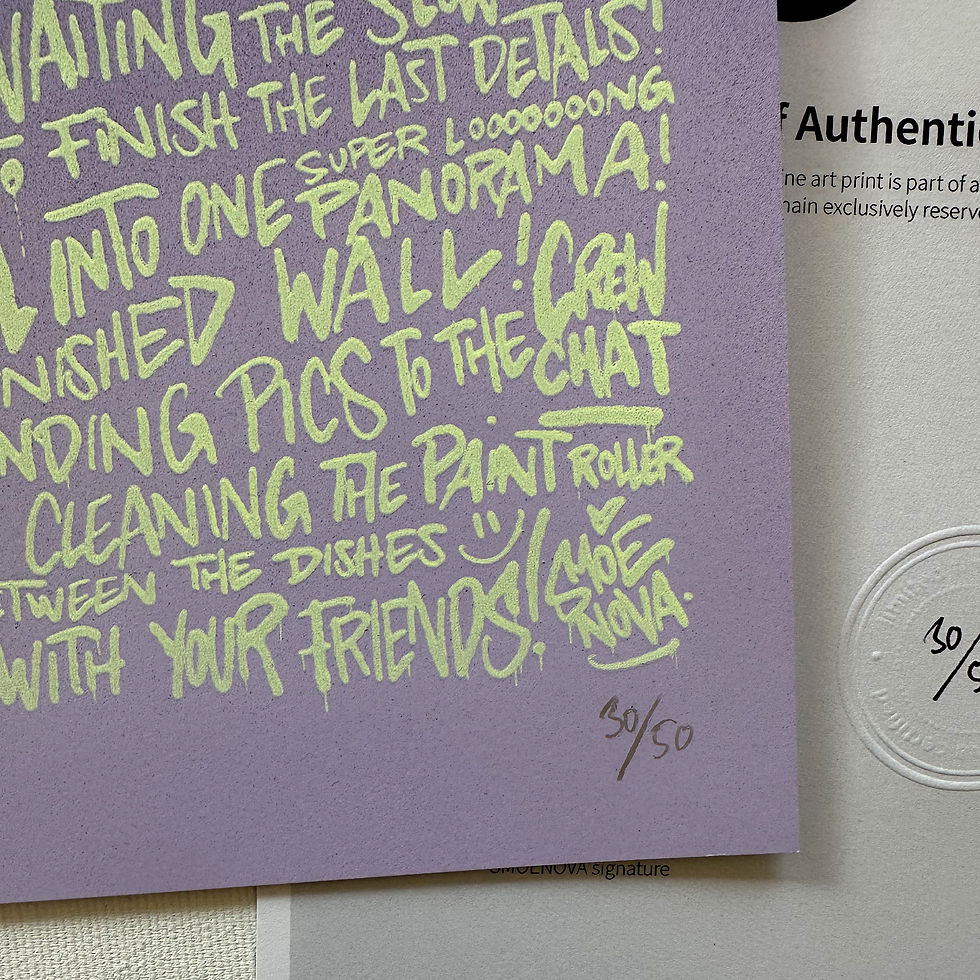 WAITING THE SLOW
TO FINISH THE LAST DETALS!
INTO ONE SUPER LOOOOOOONG
PANORAMA!
WALL! CREW
NDING PICS TO THE CHAT
CLEANING THE PAINT ROLLER
BETWEEN THE DISHES
WITH YOUR FRIENDS! SMOE
NOVA.
30/50
f Authenti
ine art print is part of a
main exclusively reserve
30/5
SMOENOVA signature